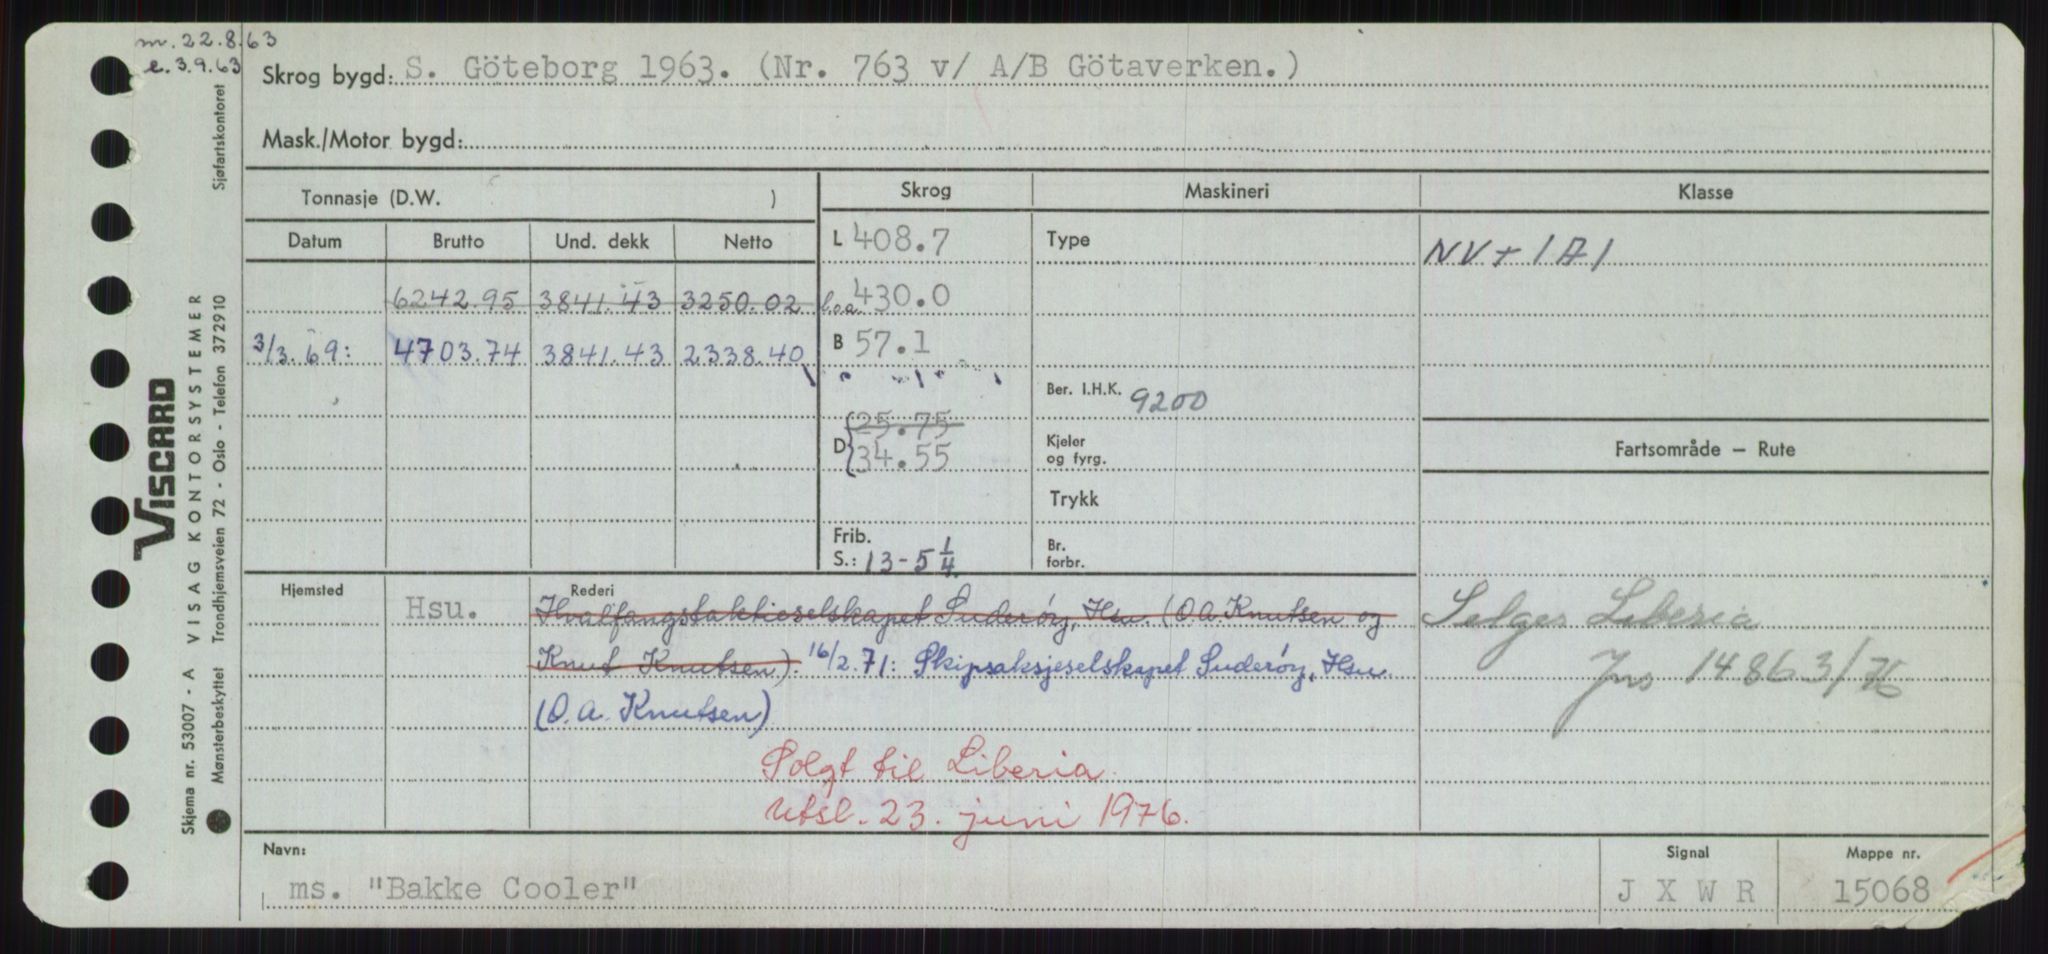 m. 22.8.63
e. 3.9.63
Skrog bygd: S. Göteborg 1963. (Nr. 763 v/ A/B Götaverken.)
Mask./Motor bygd:
Tonnasje (D.W. )
Skrog
Maskineri
Klasse
Datum Brutto Und. dekk Netto
L 408.7
Type
NV + 1A1
6242.95 3841.43 3250.02
l.o.a. 430.0
3/3.69: 4703.74 3841.43 2338.40
B 57.1
Ber. I.H.K. 9200
D 25.75
34.55
Kjeler og fyrg.
Fartsområde — Rute
Trykk
Frib. S.: 13-5 1/4
Br. forbr.
Hjemsted
Hsu.
Rederi
Hvalfangstaktieselskapet Suderøy, Hsu. (O.A. Knutsen og
Knut Knutsen). 16/2.71: Skipsaksjeselskapet Suderøy, Hsu.
(O.A. Knutsen)
Selges Liberia
Jns 14863/76
Solgt til Liberia.
Utsl. 23. juni 1976.
Navn:
ms. "Bakke Cooler"
Signal
J X W R
Mappe nr.
15068
Sjøfartskontoret
VISCARD
VISAG KONTORSYSTEMER
Skjema nr. 53007 - A
Mønsterbeskyttet Trondhjemsveien 72 - Oslo - Telefon 372910